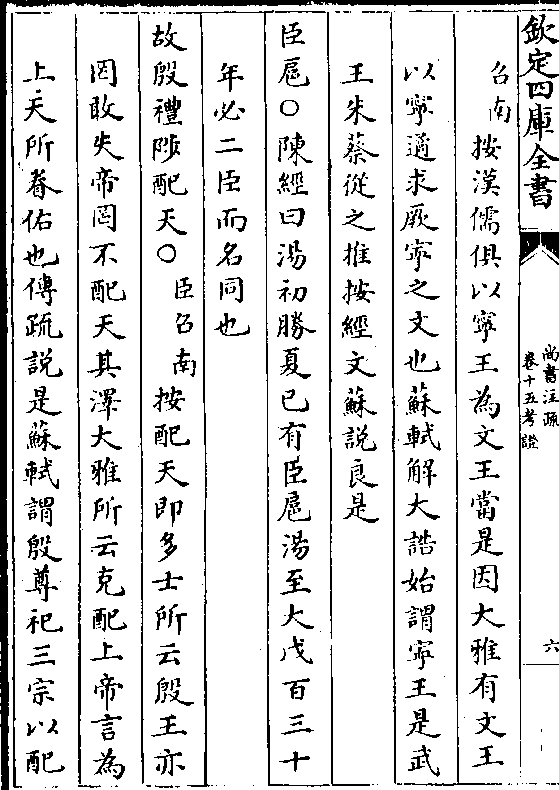 欽定四庫全書
尚書注疏
卷十五考證
六
召南按漢儒俱以寜王為文王當是因大雅有文王
以寜遹求厥寜之文也蘇軾解大誥始謂寜王是武
王朱蔡從之推按經文蘇說良是
臣扈○陳經曰湯初勝夏已有臣扈湯至大戊百三十
年必二臣而名同也
故殷禮陟配天○臣召南按配天即多士所云殷王亦
罔敢失帝罔不配天其澤大雅所云克配上帝言為
上天所眷佑也傳疏說是蘇軾謂殷尊祀三宗以配